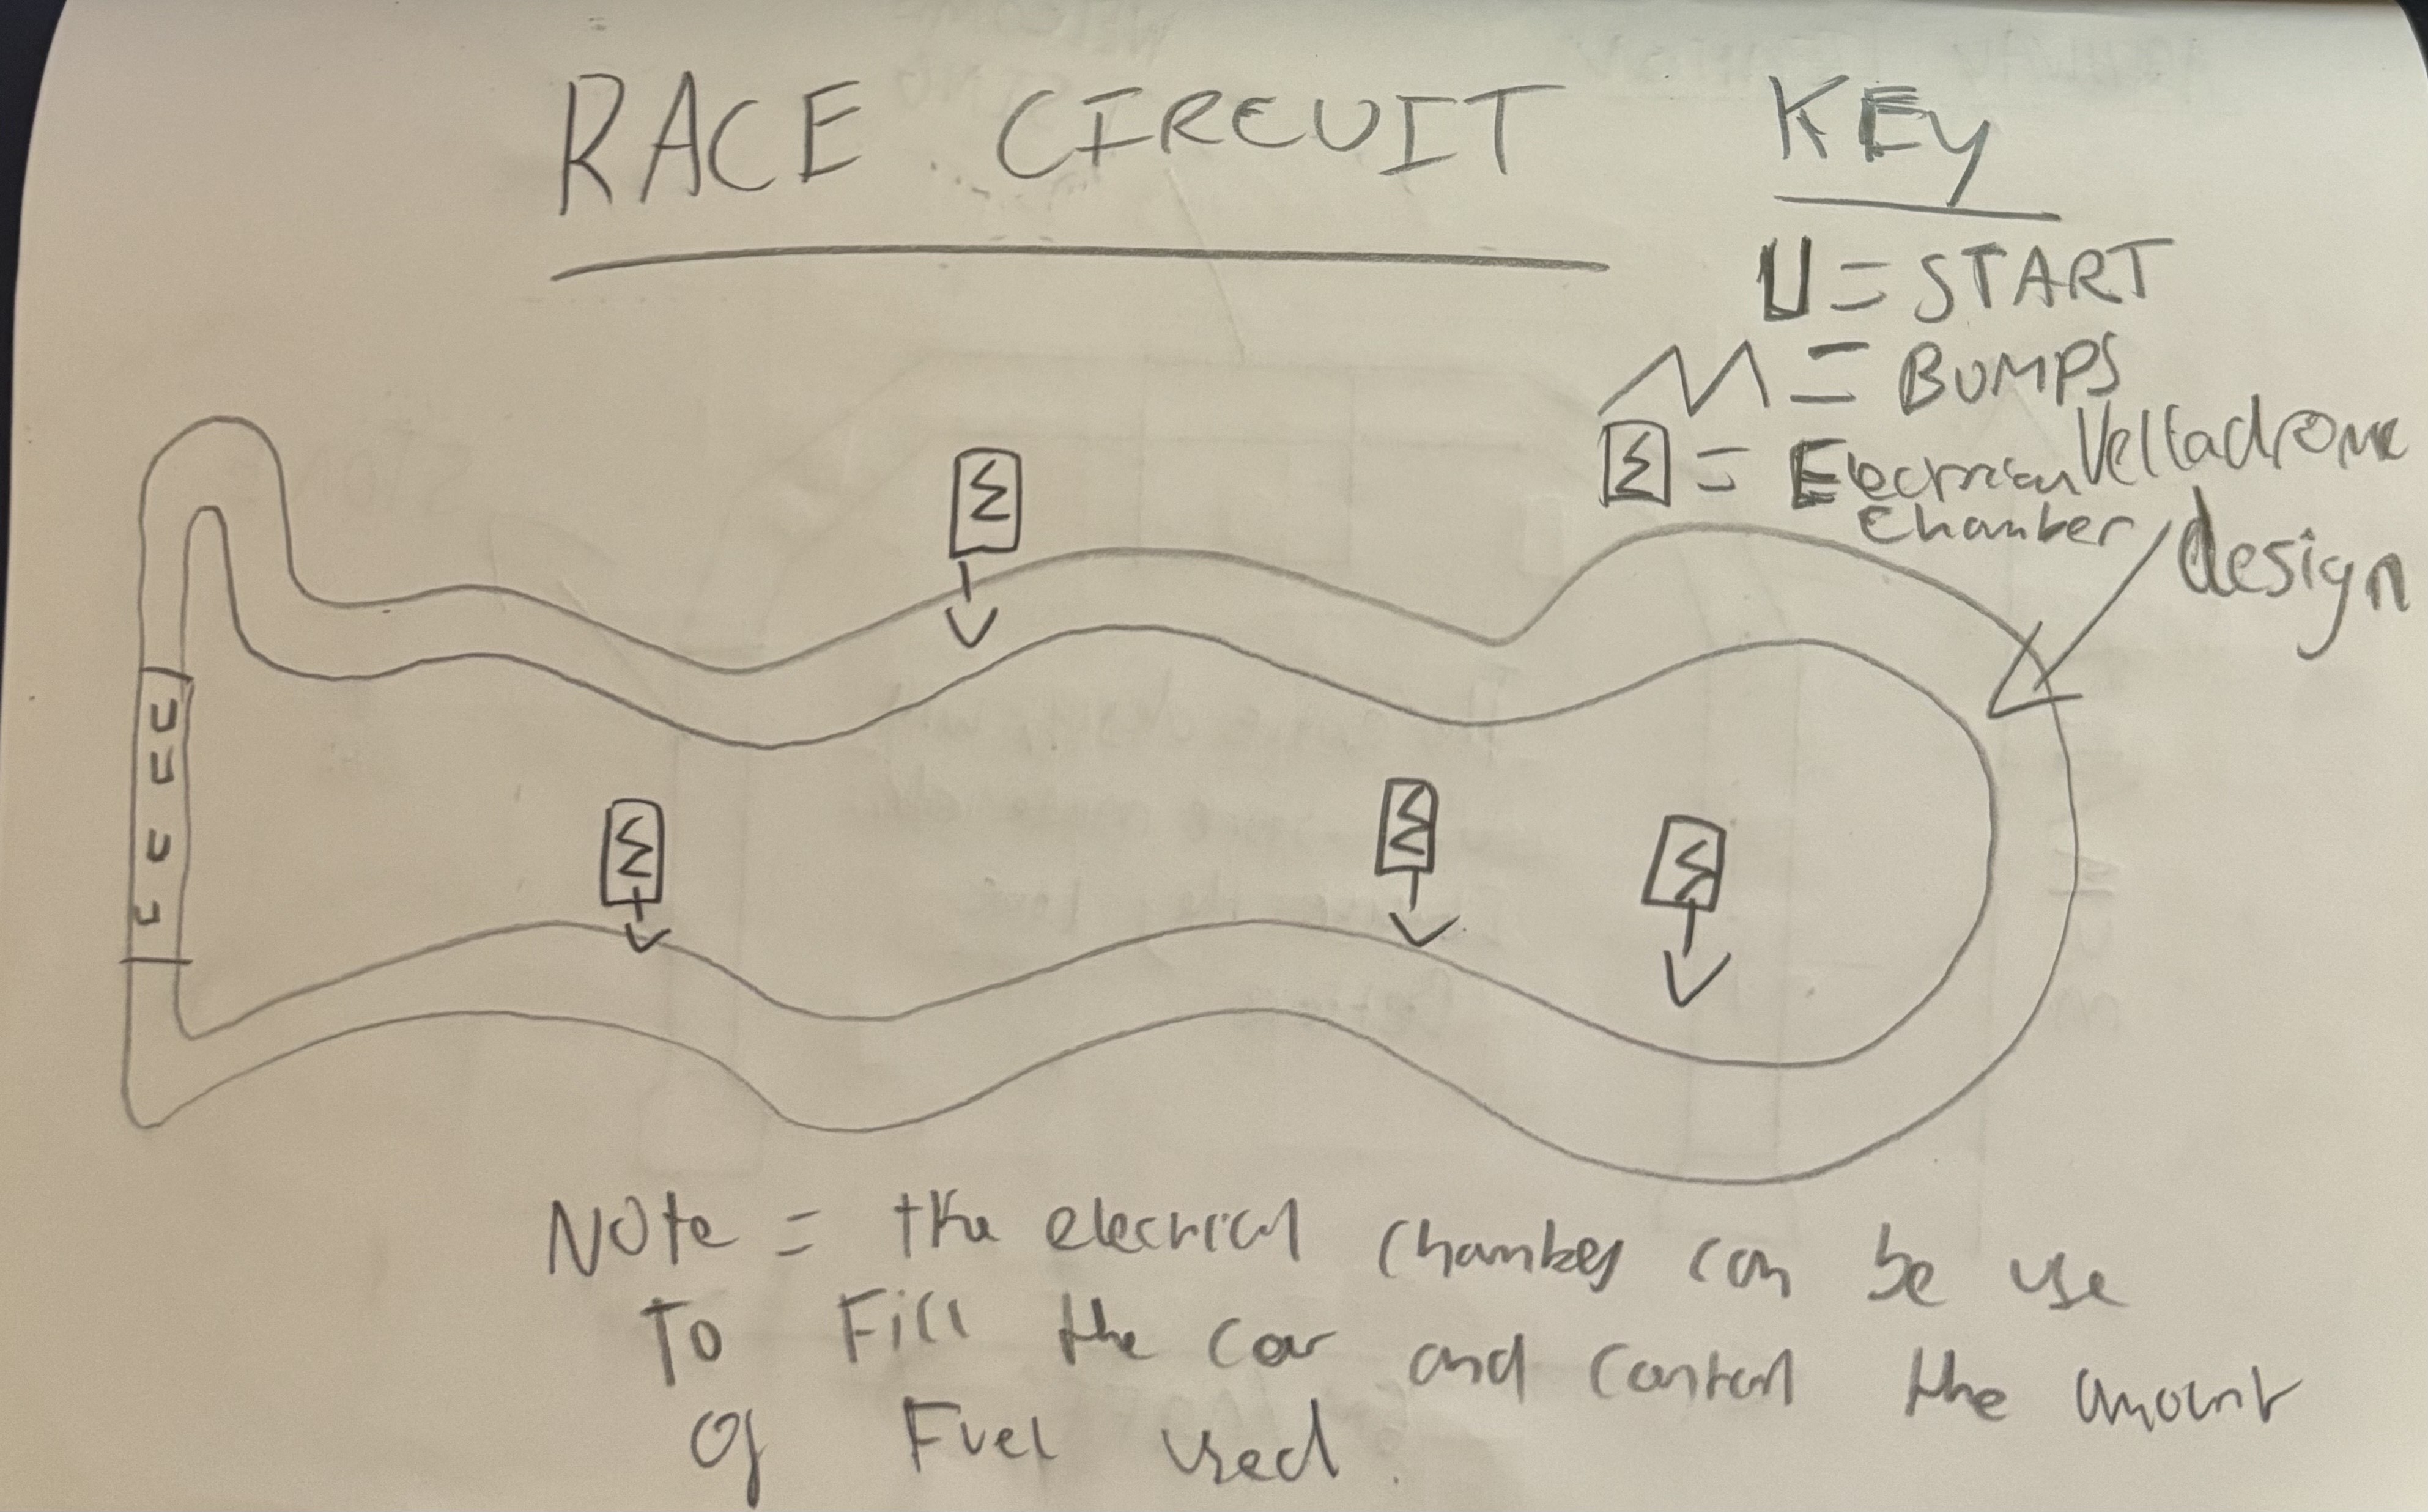 RACE CIRCUIT
KEY
U = START
M = BUMPS
= Electrical
Chamber
Velladrome
design
U
U
U
U
Note = the electrical chamber can be use
To Fill the car and control the amount
of Fuel used.